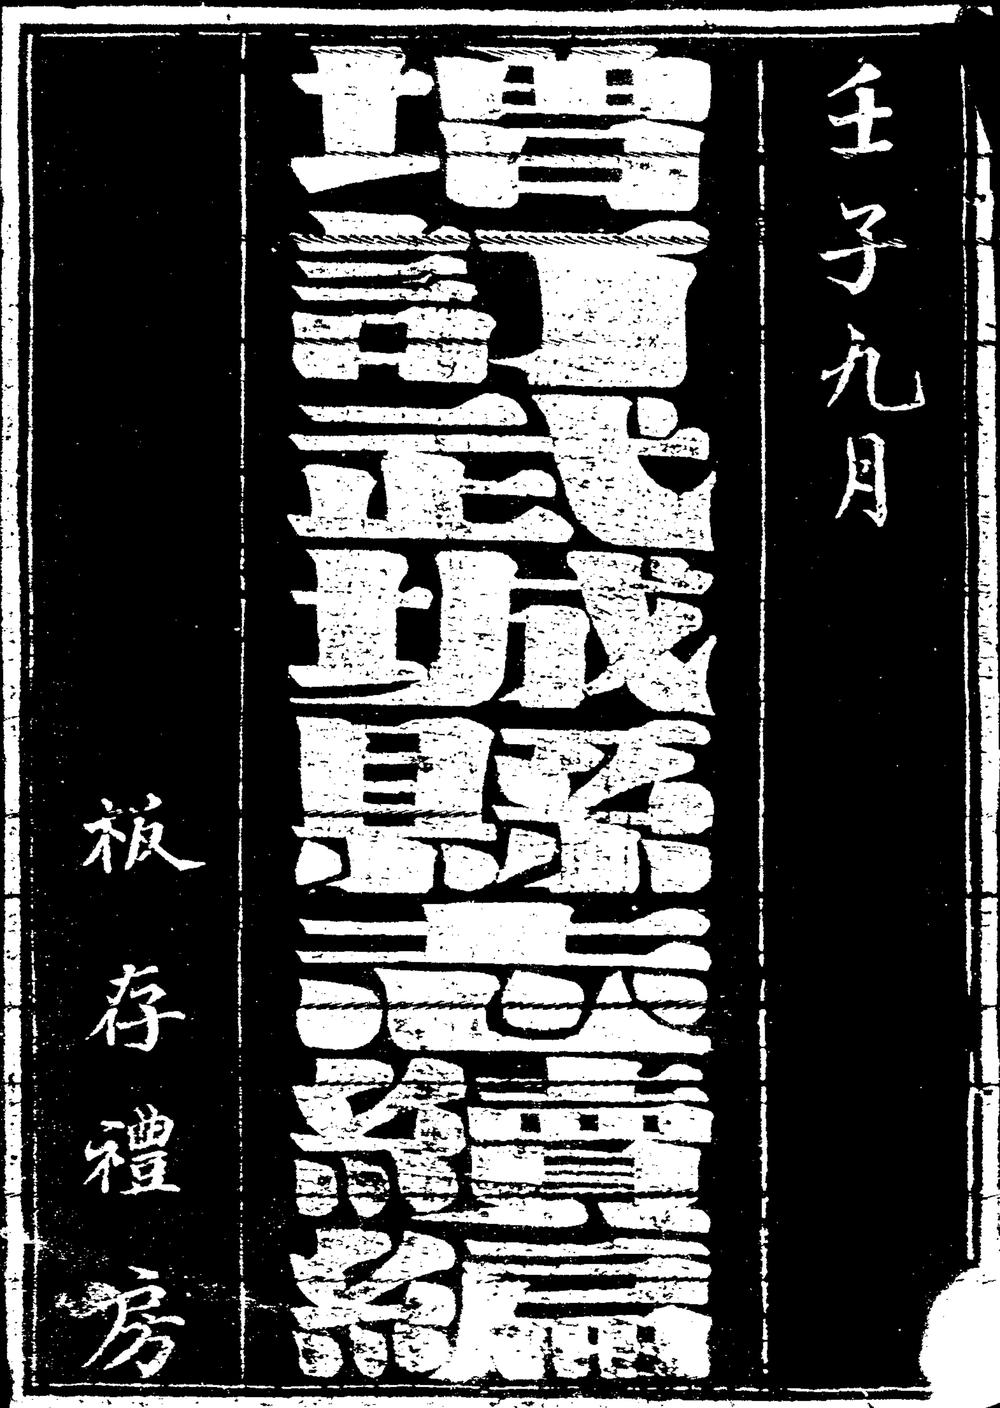 壬子九月
增訂武城縣志續編
板存禮房